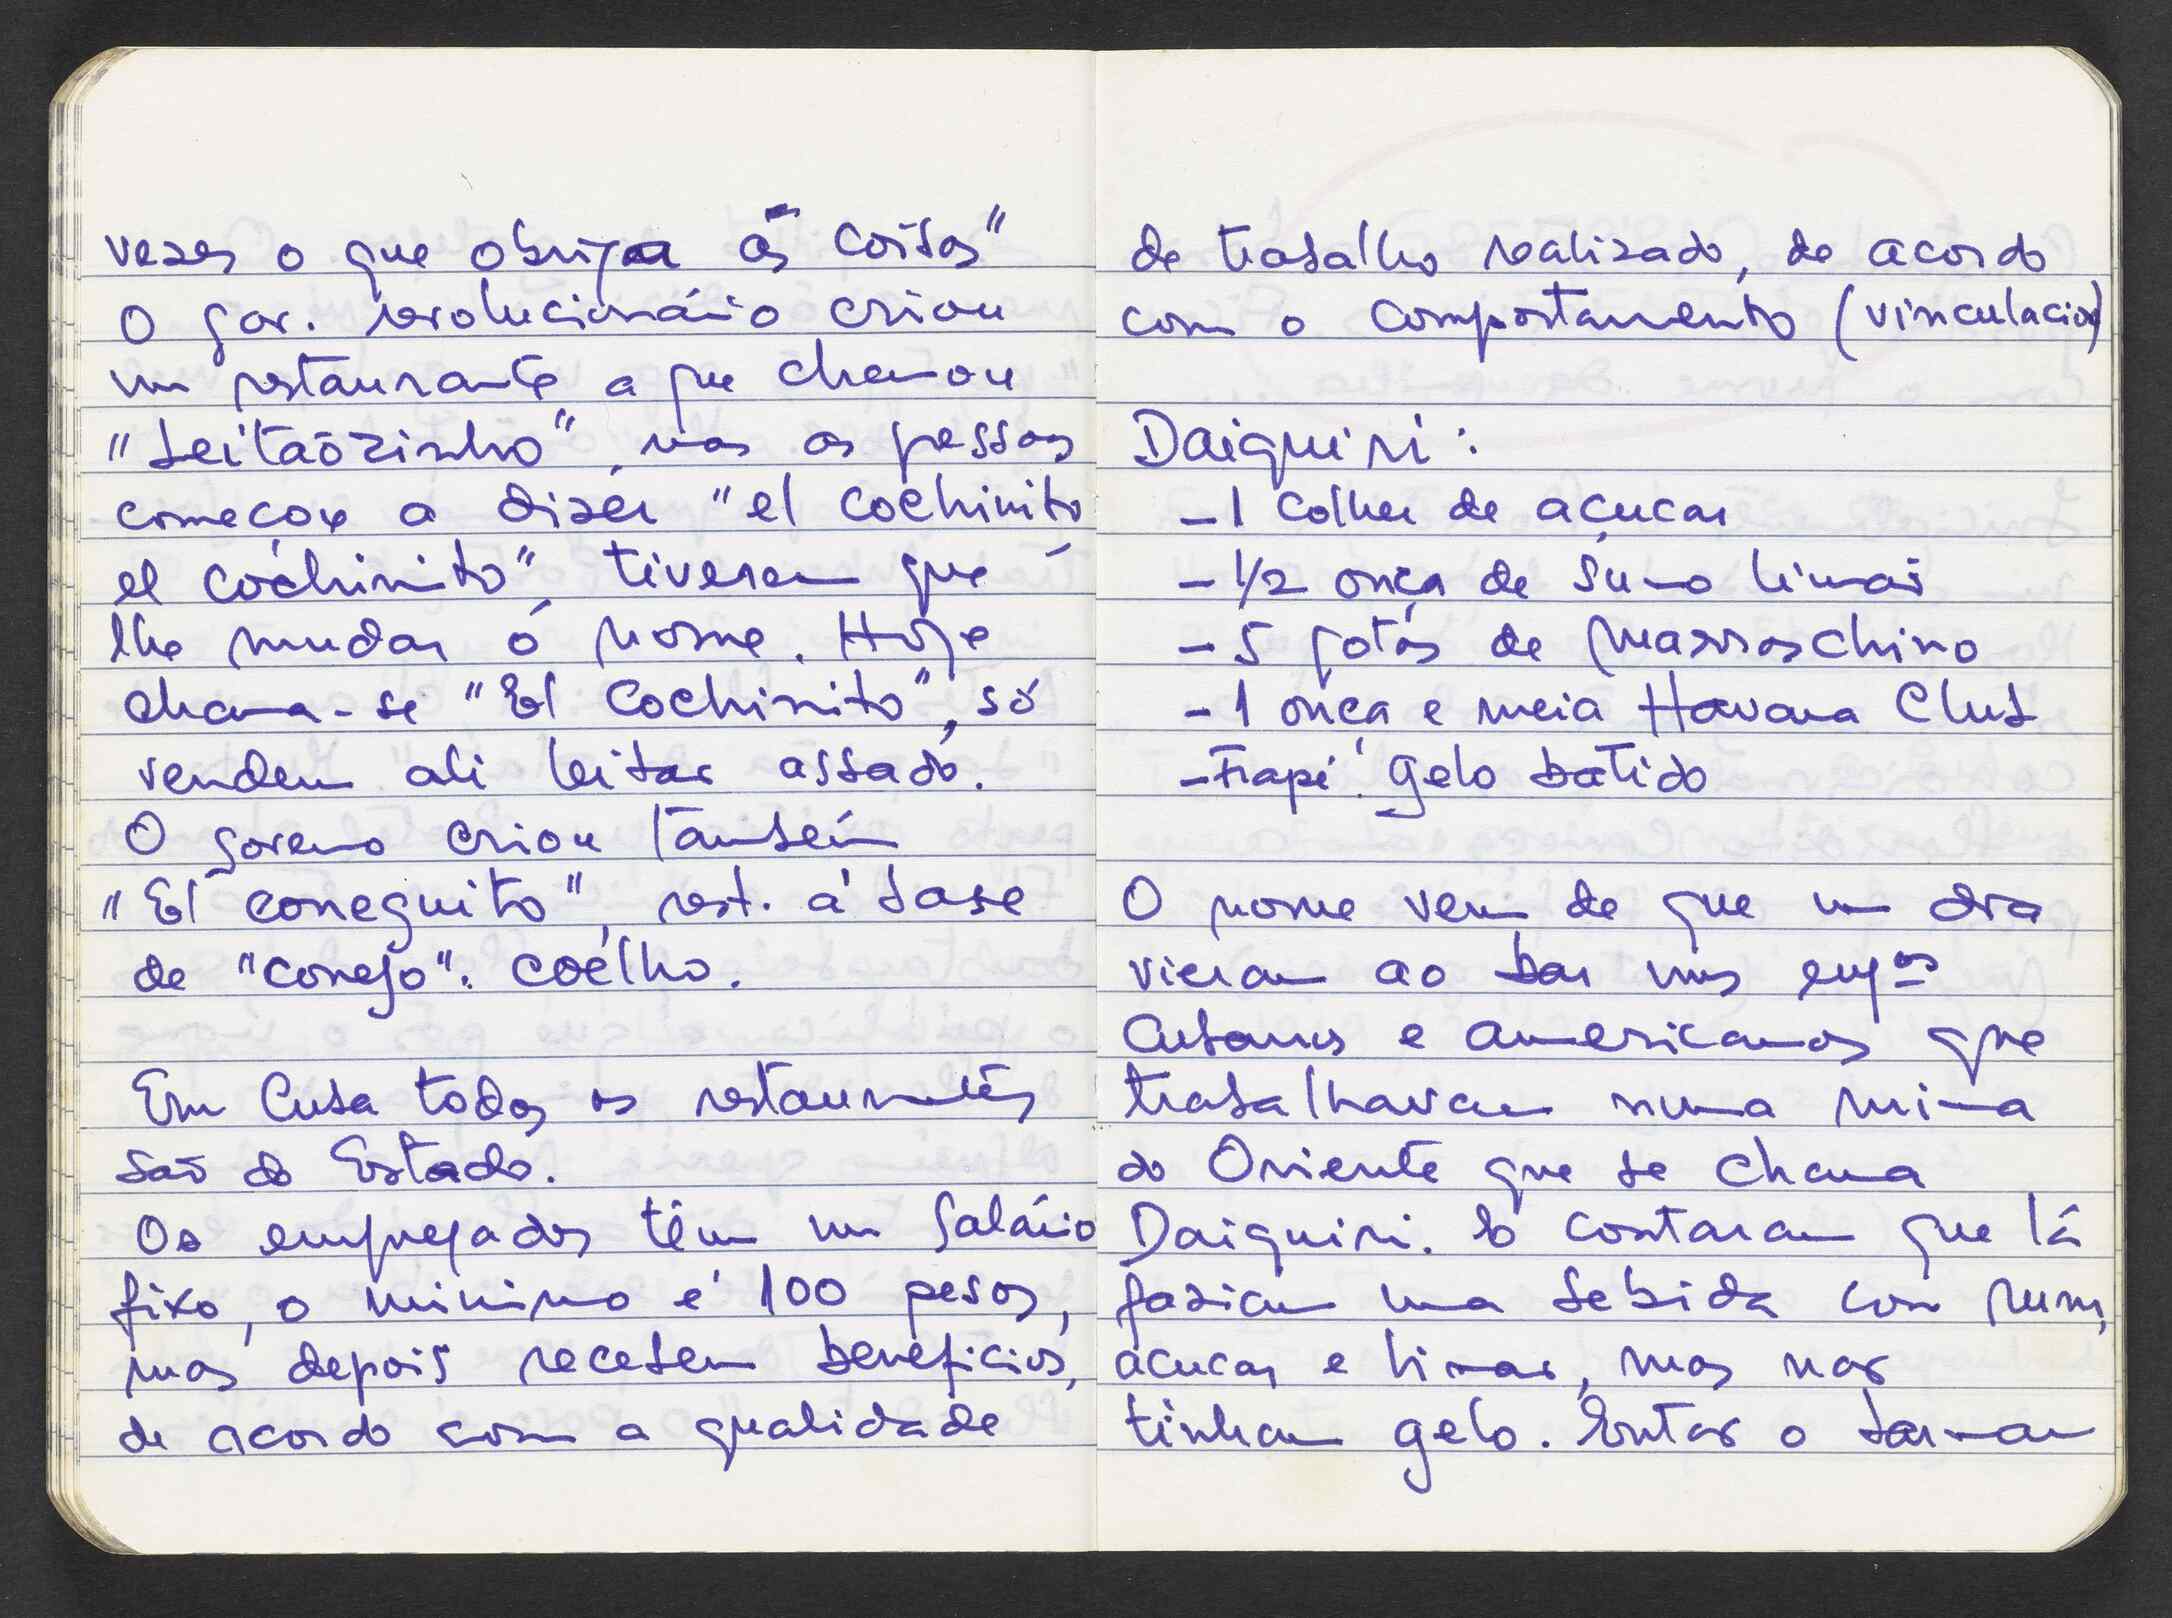 vezes o que obriga às coisas"
O gov. revolucionário criou
um restaurante a que chamou
"Leitãozinho", mas as pessoas
começou a dizer "el cochinito,
el cochinito", tiveram que
lhe mudar o nome. Hoje
chama-se "El Cochinito", só
vendem ali leitão assado.
O governo criou também
"El coneguito", rest. à base
de "conejo": coelho.
Em Cuba todos os restaurantes
são do Estado.
Os empregados têm um salário
fixo, o minimo é 100 pesos,
mas depois recebem beneficios,
de acordo com a qualidade
de trabalho realizado, de acordo
com o comportamento (vinculacion)
Daiquiri:
- 1 colher de açucar
- 1/2 onça de sumo limão
- 5 gotas de Marraschino
- 1 onça e meia Havana Club
- Frapé: gelo batido
O nome vem de que um dia
vieram ao bar uns engos
Cubanos e americanos que
trabalhavam numa mina
do Oriente que se chama
Daiquiri. E contaram que lá
faziam uma bebida com rum,
açucar e limão, mas não
tinham gelo. Então o barman